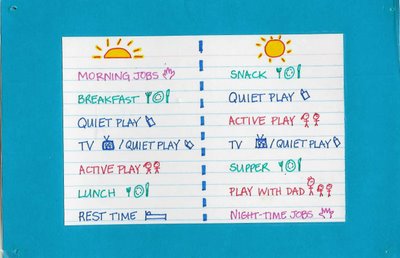 MORNING JOBS
BREAKFAST
QUIET PLAY
TV / QUIET PLAY
ACTIVE PLAY
LUNCH
REST TIME
SNACK
QUIET PLAY
ACTIVE PLAY
TV / QUIET PLAY
SUPPER
PLAY WITH DAD
NIGHT-TIME JOBS